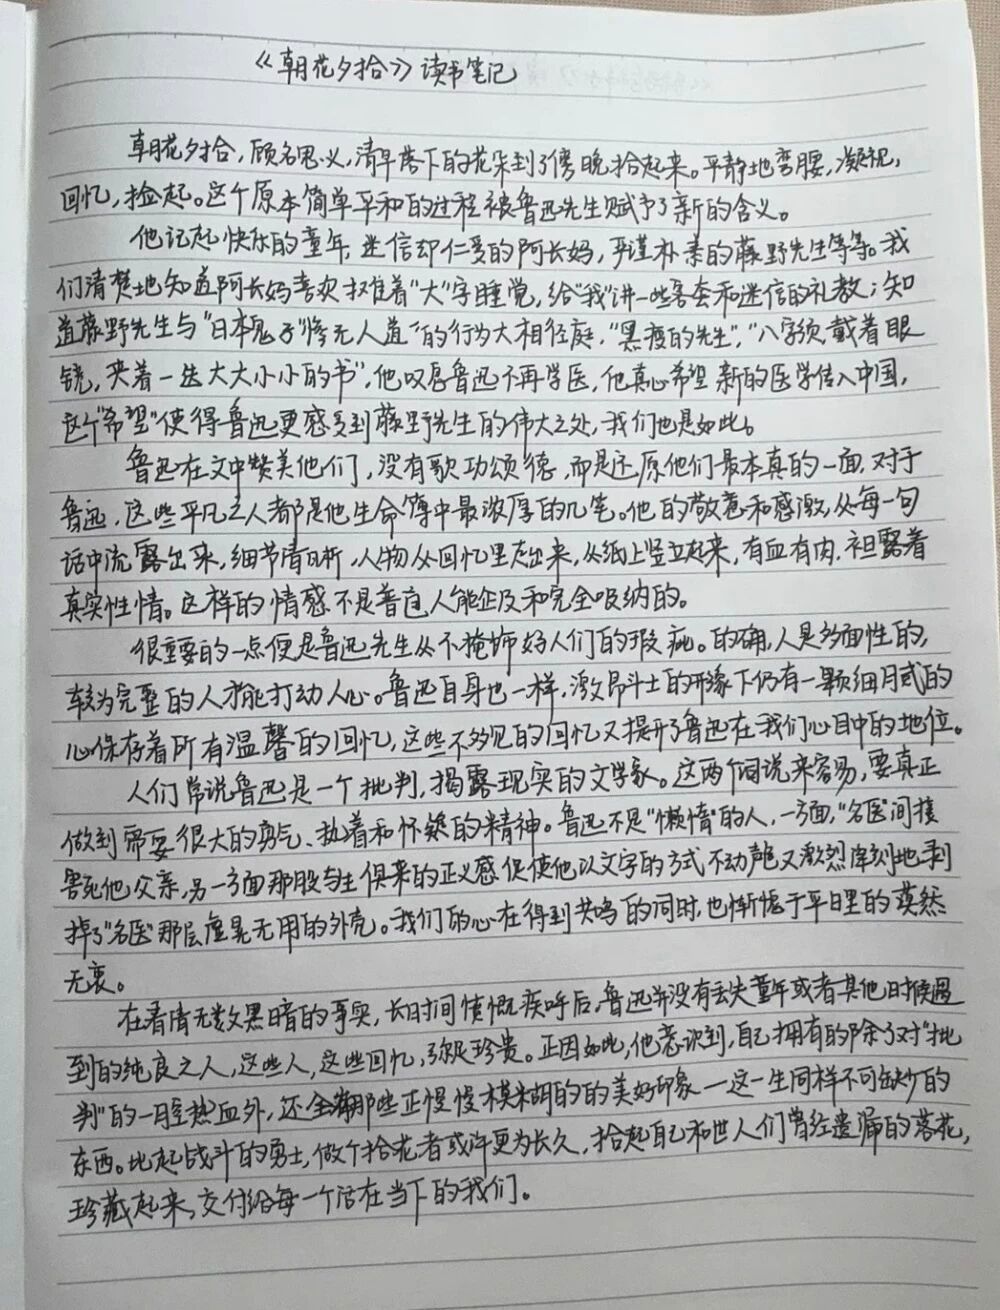 《朝花夕拾》读书笔记
朝花夕拾，顾名思义，清早落下的花朵到了傍晚拾起来。平静地弯腰，凝视，
回忆，捡起。这个原本简单平和的过程被鲁迅先生赋予了新的含义。
他记起快乐的童年，迷信却仁爱的阿长妈，严谨朴素的藤野先生等等。我
们清楚地知道阿长妈喜欢摊着“大”字睡觉，给“我”讲一些客套和迷信的礼教；知
道藤野先生与“日本鬼子”“惨无人道”的行为大相径庭，“黑瘦的先生”，“八字须，戴着眼
镜，夹着一迭大大小小的书”，他叹息鲁迅不再学医，他真心希望新的医学传入中国，
这个“希望”使得鲁迅更感受到藤野先生的伟大之处，我们也是如此。
鲁迅在文中赞美他们，没有歌功颂德，而是还原他们最本真的一面，对于
鲁迅，这些平凡之人都是他生命簿中最浓厚的几笔。他的敬意和感激，从每一句
话中流露出来，细节清晰，人物从回忆里走出来，从纸上竖立起来，有血有肉，袒露着
真实性情。这样的情感不是普通人能企及和完全吸纳的。
很重要的一点便是鲁迅先生从不掩饰好人们的瑕疵。的确，人是多面性的，
较为完整的人才能打动人心。鲁迅自身也一样，激昂斗士的形象下仍有一颗细腻的
心保存着所有温馨的回忆，这些不多见的回忆又提升了鲁迅在我们心目中的地位。
人们常说鲁迅是一个批判，揭露现实的文学家。这两个词说来容易，要真正
做到需要很大的勇气、执着和怀疑的精神。鲁迅不是“懒惰”的人，一方面，“名医”间接
害死他父亲，另一方面那股与生俱来的正义感促使他以文字的方式不动声色又激烈深刻地剥
掉了“名医”那层虚晃无用的外壳。我们的心在得到共鸣的同时，也惭愧于平日里的漠然
无衷。
在看清无数黑暗的事实，长时间愤慨疾呼后，鲁迅并没有丢失童年或者其他时候遇
到的纯良之人，这些人，这些回忆，弥足珍贵。正因如此，他意识到，自己拥有的除了对“批
判”的一腔热血外，还全那些正慢慢模糊的的美好印象一这一生同样不可缺少的
东西。比起战斗的勇士，做个拾花者或许更为长久，拾起自己和世人们曾经遗漏的落花，
珍藏起来，交付给每一个活在当下的我们。